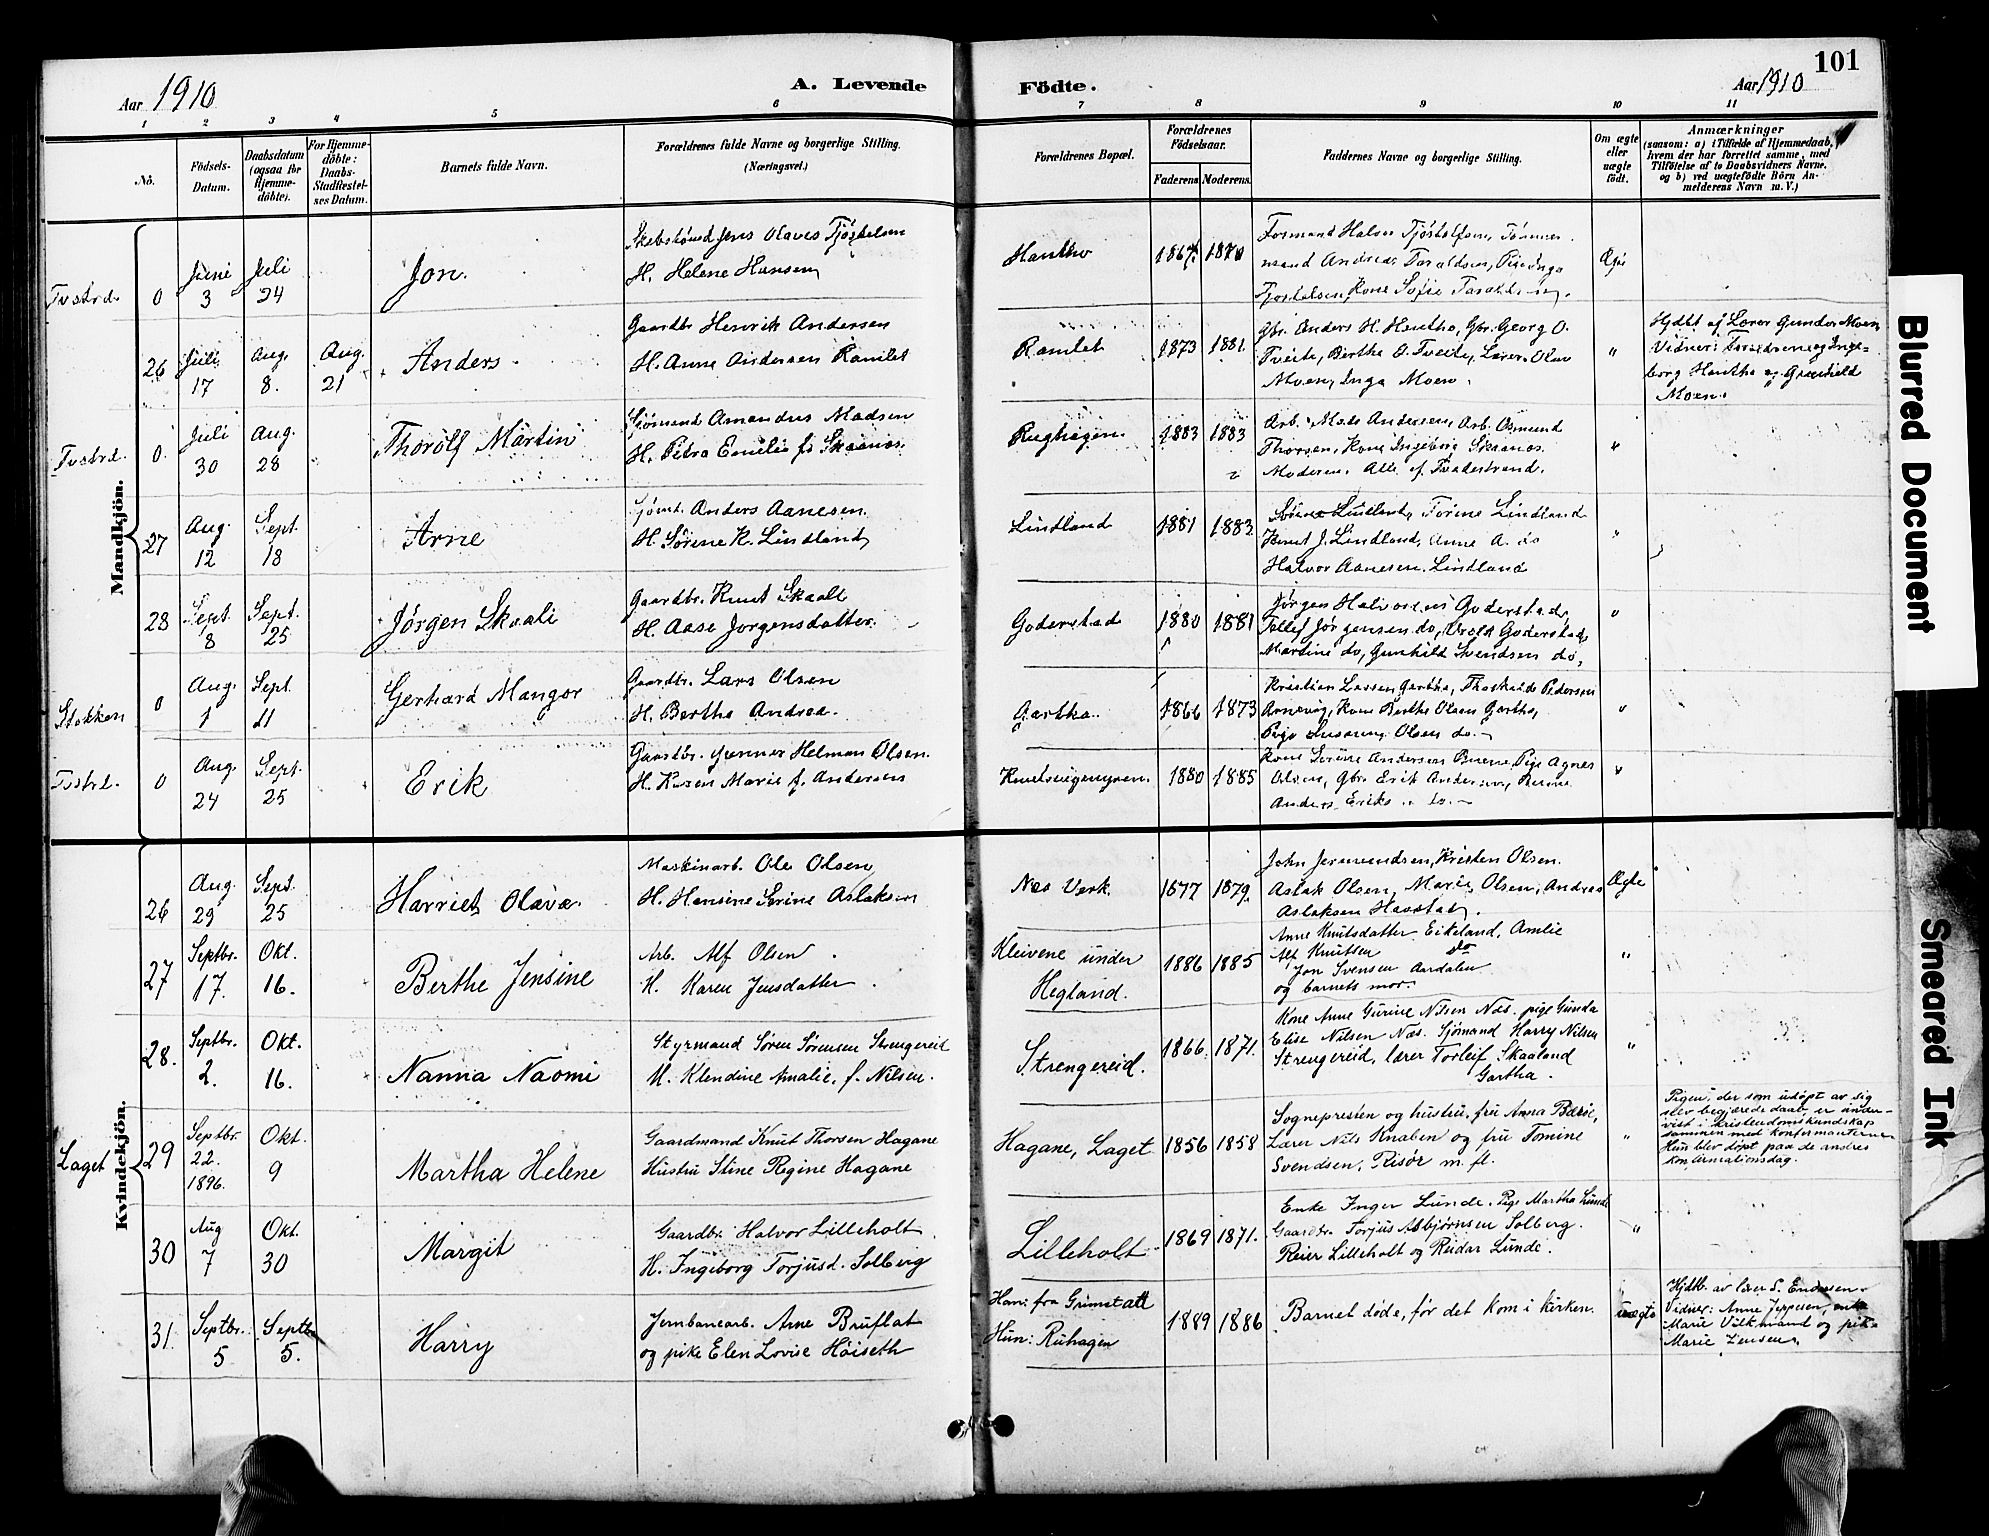 101
Aar 1910
A. Levende
Födte.
Aar 1910
1 2 3 4 5 6 7 8 9 10 11
Nö.
Födsels-Datum.
Daabsdatum (ogsaa for Hjemme-döbte).
For Hjemme-döbte: Daabs-Stadfæstel-ses Datum.
Barnets fulde Navn.
Forældrenes fulde Navne og borgerlige Stilling. (Næringsvei.)
Forældrenes Bopæl.
Forældrenes Födselsaar.
Faderens. Moderens.
Faddernes Navne og borgerlige Stilling.
Om ægte eller uægte födt.
Anmærkninger
(saasom: a) i Tilfælde af Hjemmedaab,
hvem der har forrettet samme, med
Tilföielse af to Daabsvidners Navne,
og b) ved uægtefödte Börn An-
melderens Navn m. V.)
Mandkjön.
Tvstrd. 0 Juni 3 Juli 24 Jon.
Jens Olaves Tjøstelsen
H. Helene Hansen
Hantho 1867 1870
Formand Halvor Tjøstolfsen, Tømmer-
mand Andreas Taraldsen, Pige Inga
Tjostelsen, Kone Sofie Taraldsen.
Ægte
26 Juli 17 Aug. 8. Aug. 21 Anders
Gaardbr Henrik Andersen
H. Anne Andersen Ramlet
Ramlet 1873 1881.
Gbr. Anders H. Hantho, Gbr. Georg O.
Tveite, Berthe O. Tveite, Lærer Olav
Moen, Inga Moen.
"
Hjdbt af Lærer Gunder Moen
Vidner: Forældrene og Inge-
borg Hantho og Gunhild
Moen.
Tvstrd. 0. Juli 30 Aug. 28 Thorolf Martin
Sjømand Amandus Madsen
H. Petra Emilie f. Skaanes.
Rughagen 1883 1883
Arb. Mads Andersen, Arb. Osmund
Thorsen, Kone Ingeborg Skaanes.
Moderen. Alle af Tvedestrand.
"
27 Aug. 12 Sept 18 Arne
Sjømd. Anders Aanesen.
H. Sørine K. Lindland
Lindland 1881 1883
Sørine Lindland, Torine Lindland
Knut J. Lindland, Anne A. do
Halvor Aanesen Lindland
"
28 Sept. 8 Sept. 25 Jørgen Skaali
Gaardbr. Knut Skaali
H. Aase Jørgensdatter.
Goderstad 1880 1881
Jørgen Halvorsen Goderstad,
Tellef Jørgensen do, Goderstad,
Martine do, Gunhild Svendsen do,
"
Stokken 0 Aug. 1 Sept. 11 Gerhard Mangor
Gaardbr. Lars Olsen
H. Berthe Andrea.
Gartha. 1866 1873
Kristian Larsen Gartha, Pedersen
Arnevig, Kone Berthe Olsen Gartha,
Pige Olsen do.
"
Tvstrd. 0 Aug. 24 Sept. 25 Erik
Gaardbr. Gunner Helman Olsen.
H. Karen Marie f. Andersen
1880 1885
Kone Sørine Andersen Pige Agnes
Olsen, Gbr. Erik Andersen,
Anders Eriks. do.
"
Kvindekjön.
26 Aug. 29 Sept. 25 Harriet Olava.
Maskinarb. Ole Olsen
H. Hansine Serine Aslaksen
Nes Verk. 1877 1879.
John Jermundsen, Kristen Olsen.
Aslak Olsen, Marie Olsen, Andreas
Aslaksen Havstad.
Ægte
27 Septbr. 17. Okt. 16. Berthe Jensine
Arb. Alf Olsen
H. Karen Jensdatter
Kleivene under
Hegland.
1886 1885
Anne Knutsdatter Eikeland, Amlie
Alf Knutsen do
Jon Svensen Aardalen
og barnets mor.
"
28. Septbr. 2. Okt. 16. Nanna Naomi
Styrmand Søren Sørensen Strengereid
H. Klendine Amalie, f. Nilsen.
Strengereid. 1866. 1871.
Kone Anne Gurine Nilsen Næs. pige Gunda
Elise Nilsen Næs. Sjömand Harry Nilsen
Strengereid, lærer Torleif Skaaland
Gartha.
"
Laget 29 Septbr. 22. 1896. Okt. 9 Martha Helene
Gaardmand Knut Thorsen Hagane
Hustru Stine Regine Hagane
Hagane, Laget 1856 1858
Sognepresten og hustru, fru Anna Barøe,
Lærer Nils Knaben og fru Tomine
Svendsen, Risør m. fl.
"
Pigen, der som udöpt av sig
selv begjærede daab, er under-
vist i kristendomskundskap
sammen med konfirmanterne
Hun blev döpt paa de andres
konfirmationsdag.
30 Aug 7 Okt. 30 Margit
Gaardbr. Halvor Lilleholt
H. Ingeborg Torjusd. Solberg
Lilleholt 1869 1871.
Enke Inger Lunde. Pige Martha Lunde
Gaardbr. Torjus Asbjørnsen Solberg.
Reier Lilleholt og Reidar Lunde.
"
31. Septbr. 5 Septbr 5. Harry
Jernbanearb. Arne Bruflat
og pike Elen Lovise Höiseth
Han: fra Grimstad
Hun: Ruhagen
1889 1886
Barnet døde, før det kom i kirken.
uægte
Hjdb. av lærer S. Endresen.
Vidner: Anne Jeppesen, enke
Marie og pike
Marie Jensen.
Blurred Document
Smeared Ink